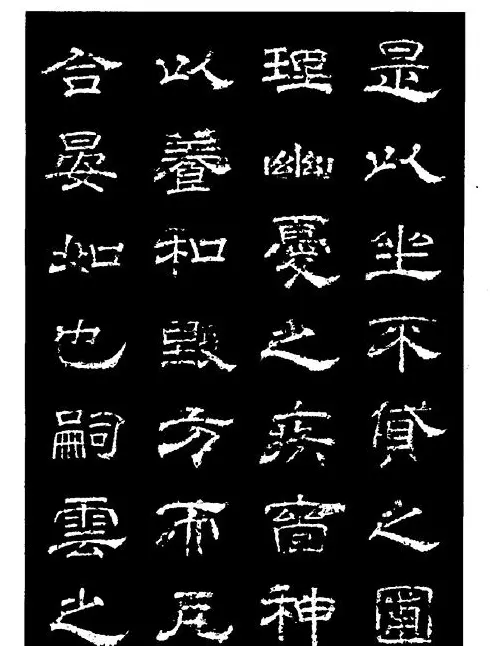 是以坐不貸之圃
理幽憂之疾嗇神
以養和毀方而瓦
合晏如也嗣雲之